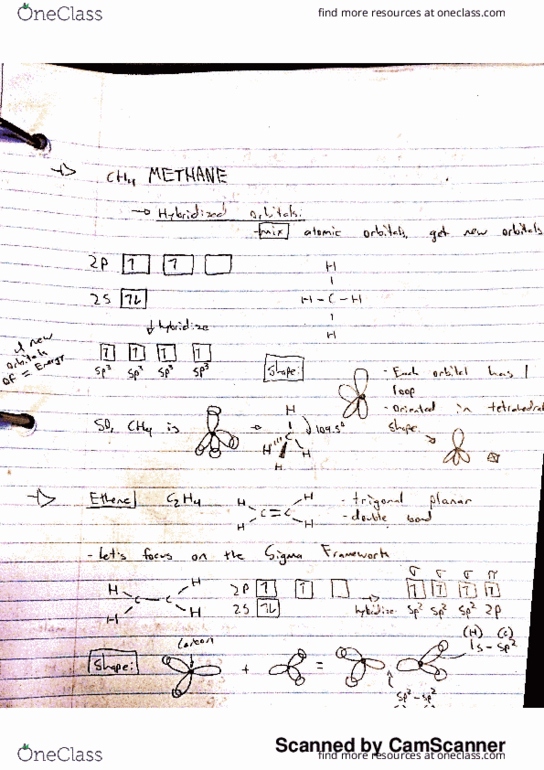 OneClass
find more resources at oneclass.com
→ CH4 METHANE
→ Hybridized orbitals:
mix atomic orbitals, get new orbitals
2P 1 1
2S 1L
H
H - C - H
H
↓ hybridize
4 new
orbitals
of = Energy
1 1 1 1
sp3 sp3 sp3 sp3
Shape:
- Each orbital has 1
loop
- oriented in tetrahedral
shape.
SO, CH4 is
→
H
C
H H H
109.5°
→ Ethene C2H4
H H
C = C
H H
- trigonal planar
- double bond
- Let's focus on the Sigma Framework
H H
C - C
H H
2P 1 1
2S 1L
→
hybridize
σ σ σ π
1 1 1 1
sp2 sp2 sp2 2P
Shape:
carbon
+ =
(H) (C)
1s - sp2
sp2 - sp2
Scanned by CamScanner
OneClass
find more resources at oneclass.com